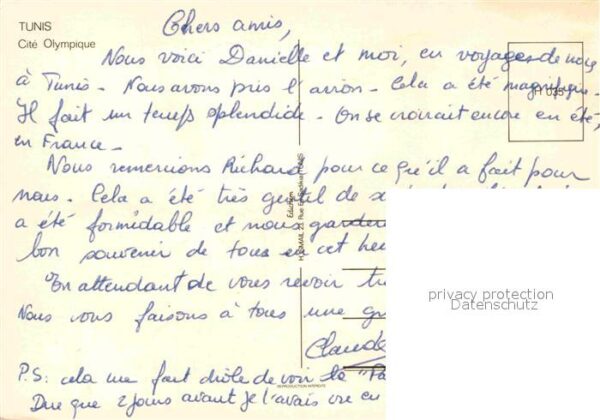 TUNIS
Cité Olympique
Chers amis,
Nous voici Danielle et moi, en voyages de noces
à Tunis - Nous avons pris l'avion - Cela a été magnifique -
Il fait un temps splendide - On se croirait encore en été,
en France -
Nous remercions Richard pour ce qu'il a fait pour
nous - Cela a été très gentil de
a été formidable et nous
bon souvenir de tous en cet
En attendant de vous revoir
Nous vous faisons à tous une
Claude
P.S: cela me fait drôle de voir la
Due que 2 jours avant je l'avais vue en
Edition
REPRODUCTION INTERDITE
privacy protection
Datenschutz